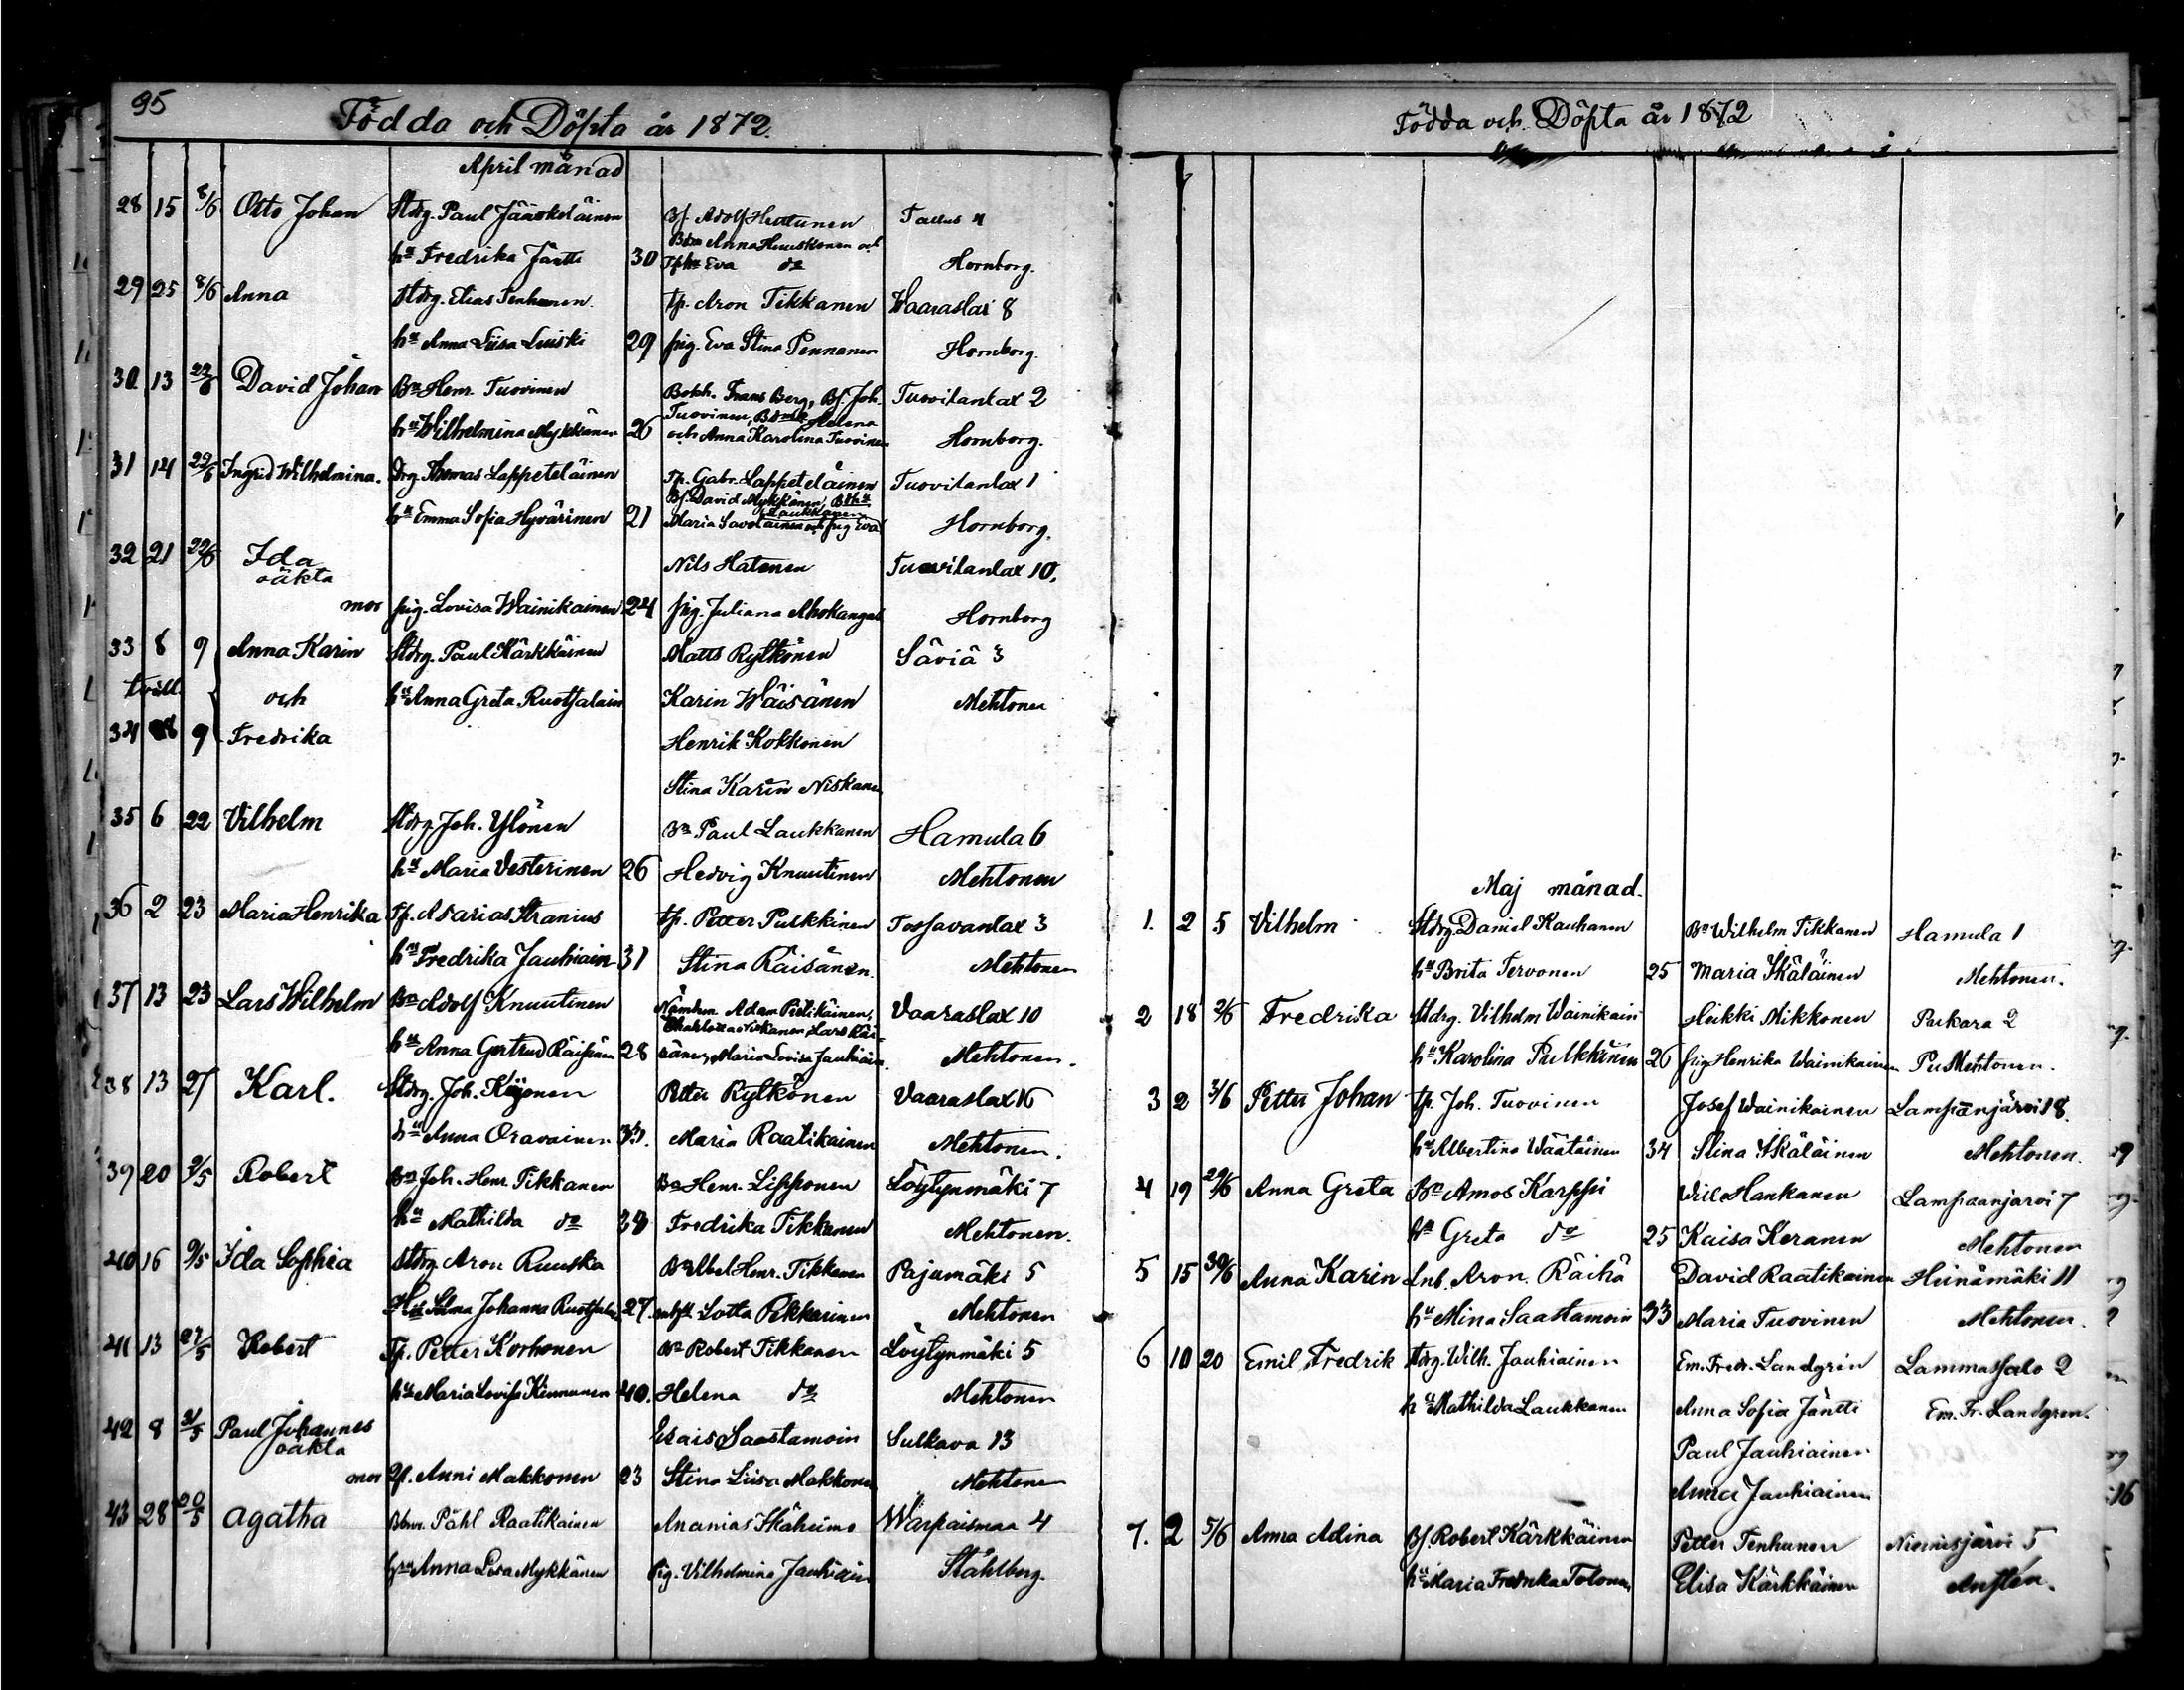 95
Födda och Döpta år 1872.
April månad
28 15 8/6 Otto Johan Stdrg. Paul Jääskeläinen Bf. Adolf Huttunen Tallus 4
hu Fredrika Jäntti 30 Bdm Anna Huuskonen och
Tphu Eva do Hornborg.
29 25 8/6 Anna Stdrg. Elias Tenhunen tp. Aron Tikkanen Waaraslai 8
hu Anna Liisa Luiski 29 pig. Eva Stina Pennanen Hornborg.
30. 13 22/6 David Johan Bn Henr. Tuovinen Bokh. Frans Berg, Bf. Joh. Tuovilanlax 2
Tuovinen, Bdm Helena
hu Wilhelmina Mykkänen 26 och Anna Karolina Tuovinen Hornborg.
31 14 22/6 Ingrid Wilhelmina. Drg. Thomas Lappeteläinen Tp. Gabr. Lappeteläinen Tuovilanlax 1
Bf. David Mykkänen, Bdhu
Laukkanen
hu Emma Sofia Hyvärinen 21 Maria Savolainen och pig Eva Hornborg.
32 21 22/6 Ida Nils Hatonen Tuovilanlax 10.
oäkta
mor pig. Lovisa Wainikainen 24 pig. Juliana Ahokangas Hornborg
33 8 9 Anna Karin Stdrg. Paul Kärkkäinen Matts Rytkönen Säviä 3
tvill. och hu Anna Greta Ruotsalain Karin Wäisänen Mehtonen
34 8 9 Fredrika Henrik Kokkonen
Stina Karin Niskanen
35 6 22 Vilhelm Stdrg Joh. Ylönen Bn Paul Laukkanen Hamula 6
hu Maria Vesterinen 26 Hedvig Knuutinen Mehtonen
36 2 23 Maria Henrika Tp. Asarias Stranius tp. Petter Pulkkinen Tossavanlax 3
hu Fredrika Jauhiain 31 Stina Räisänen. Mehtonen
37 13 23 Lars Wilhelm Bn Adolf Knuutinen Nämdem. Adam Pietikäinen, Vaaraslax 10
Charlotta Niskanen, Lars Räi-
hu Anna Gertrud Räisänen 28 sänen, Maria Lovisa Jauhiain. Mehtonen.
38 13 27 Karl. Stdrg. Joh. Keijonen Petter Rytkönen Vaaraslax 16
hu Anna Oravainen 33. Maria Raatikainen Mehtonen.
39 20 9/5 Robert Bn Joh. Henr. Tikkanen Bn Henr. Lipponen Löytynmäki 7
hu Mathilda do 38 Fredrika Tikkanen Mehtonen.
40 16 9/5 Ida Sophia Stdrg Aron Ruuska Bn Abel Henr. Tikkanen Pajumäki 5
Hu Selma Johanna Ruotsalain 27 Lotta Pekkarinen Mehtonen
41 13 27/5 Robert Tp. Petter Korhonen Bn Robert Tikkanen Löytynmäki 5
hu Maria Lovisa Kinnunen 40. Helena do Mehtonen
42 8 31/5 Paul Johannes Esais Saastamoin Sulkava 13
oäkta
mor Anni Makkonen 23 Stina Liisa Makkonen Mehtonen
43 28 20/5 Agatha Påhl Raatikainen Ananias Håheimo Warpaismaa 4
hu Anna Lisa Mykkänen Pig. Vilhelmina Jauhiain Ståhlberg.
Födda och Döpta år 1872
Maj månad.
1. 2 5 Vilhelm Stdrg. Daniel Kauhanen Bn Wilhelm Tikkanen Hamula 1
hu Brita Tervonen 25 Maria Skäläinen Mehtonen.
2 18 2/6 Fredrika Stdrg. Vilhelm Wainikain Heikki Mikkonen Paikara 2
hu Karolina Pulkkinen 26 pig Henrika Wainikainen Pu Mehtonen.
3 2 3/6 Petter Johan tp. Joh. Tuovinen Josef Wainikainen Lampaanjärvi 18.
hu Albertina Väätäinen 34 Stina Skäläinen Mehtonen.
4 19 29/6 Anna Greta Bn Amos Karppi Will Hankanen Lampaanjärvi 7
hu Greta do 25 Kaisa Keranen Mehtonen
5 15 30/6 Anna Karin Inh. Aron. Räihä David Raatikainen Heinämäki 11
hu Mina Saastamoin 33 Maria Tuovinen Mehtonen.
6 10 20 Emil Fredrik Stdrg. Wilh. Jauhiainen Em. Fredr. Landgrén Lammassalo 2
hu Mathilda Laukkanen Anna Sofia Jäntti Em. Fr. Landgren.
Paul Jauhiainen
Anna Jauhiainen
7. 2 5/6 Anna Adina Bf Robert Kärkkäinen Petter Tenhunen Niinisjärvi 5
hu Maria Fredrika Tolonen Elisa Kärkkäinen Anstén.